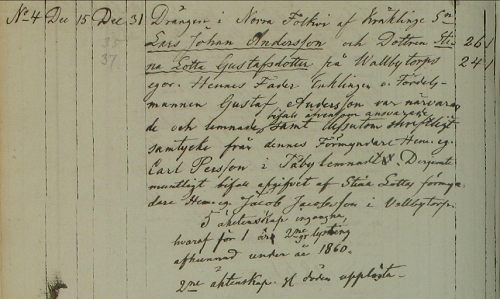 No 4 Dec 15 Dec 31 Drängen i Norra Folkvi af Kräklinge Sn
35 Lars Johan Andersson och Dottren Sti- 26 1
37 na Lotte Gustafsdotter på Wallbytorps 24 1
egor. Hennes Fader Enklingen o. Fördels-
mannen Gustaf Andersson var närvaran
bifall äfvensom
de och lemnade, samt dessutom skriftligt
samtycke från dennes Förmyndare Hem. eg.
Carl Persson i Täby lemnadt. Dergemt
muntligt bifall afgifvet af Stina Lottes förmyn
dare Hem. eg. Jacob Jacobsson i Vallbytorp.
5 äktenskap ingångna,
hvaraf för 1 är 2ne gr lysning
afkunnad under år 1860.
2ne äktenskap gm döden upplösta.